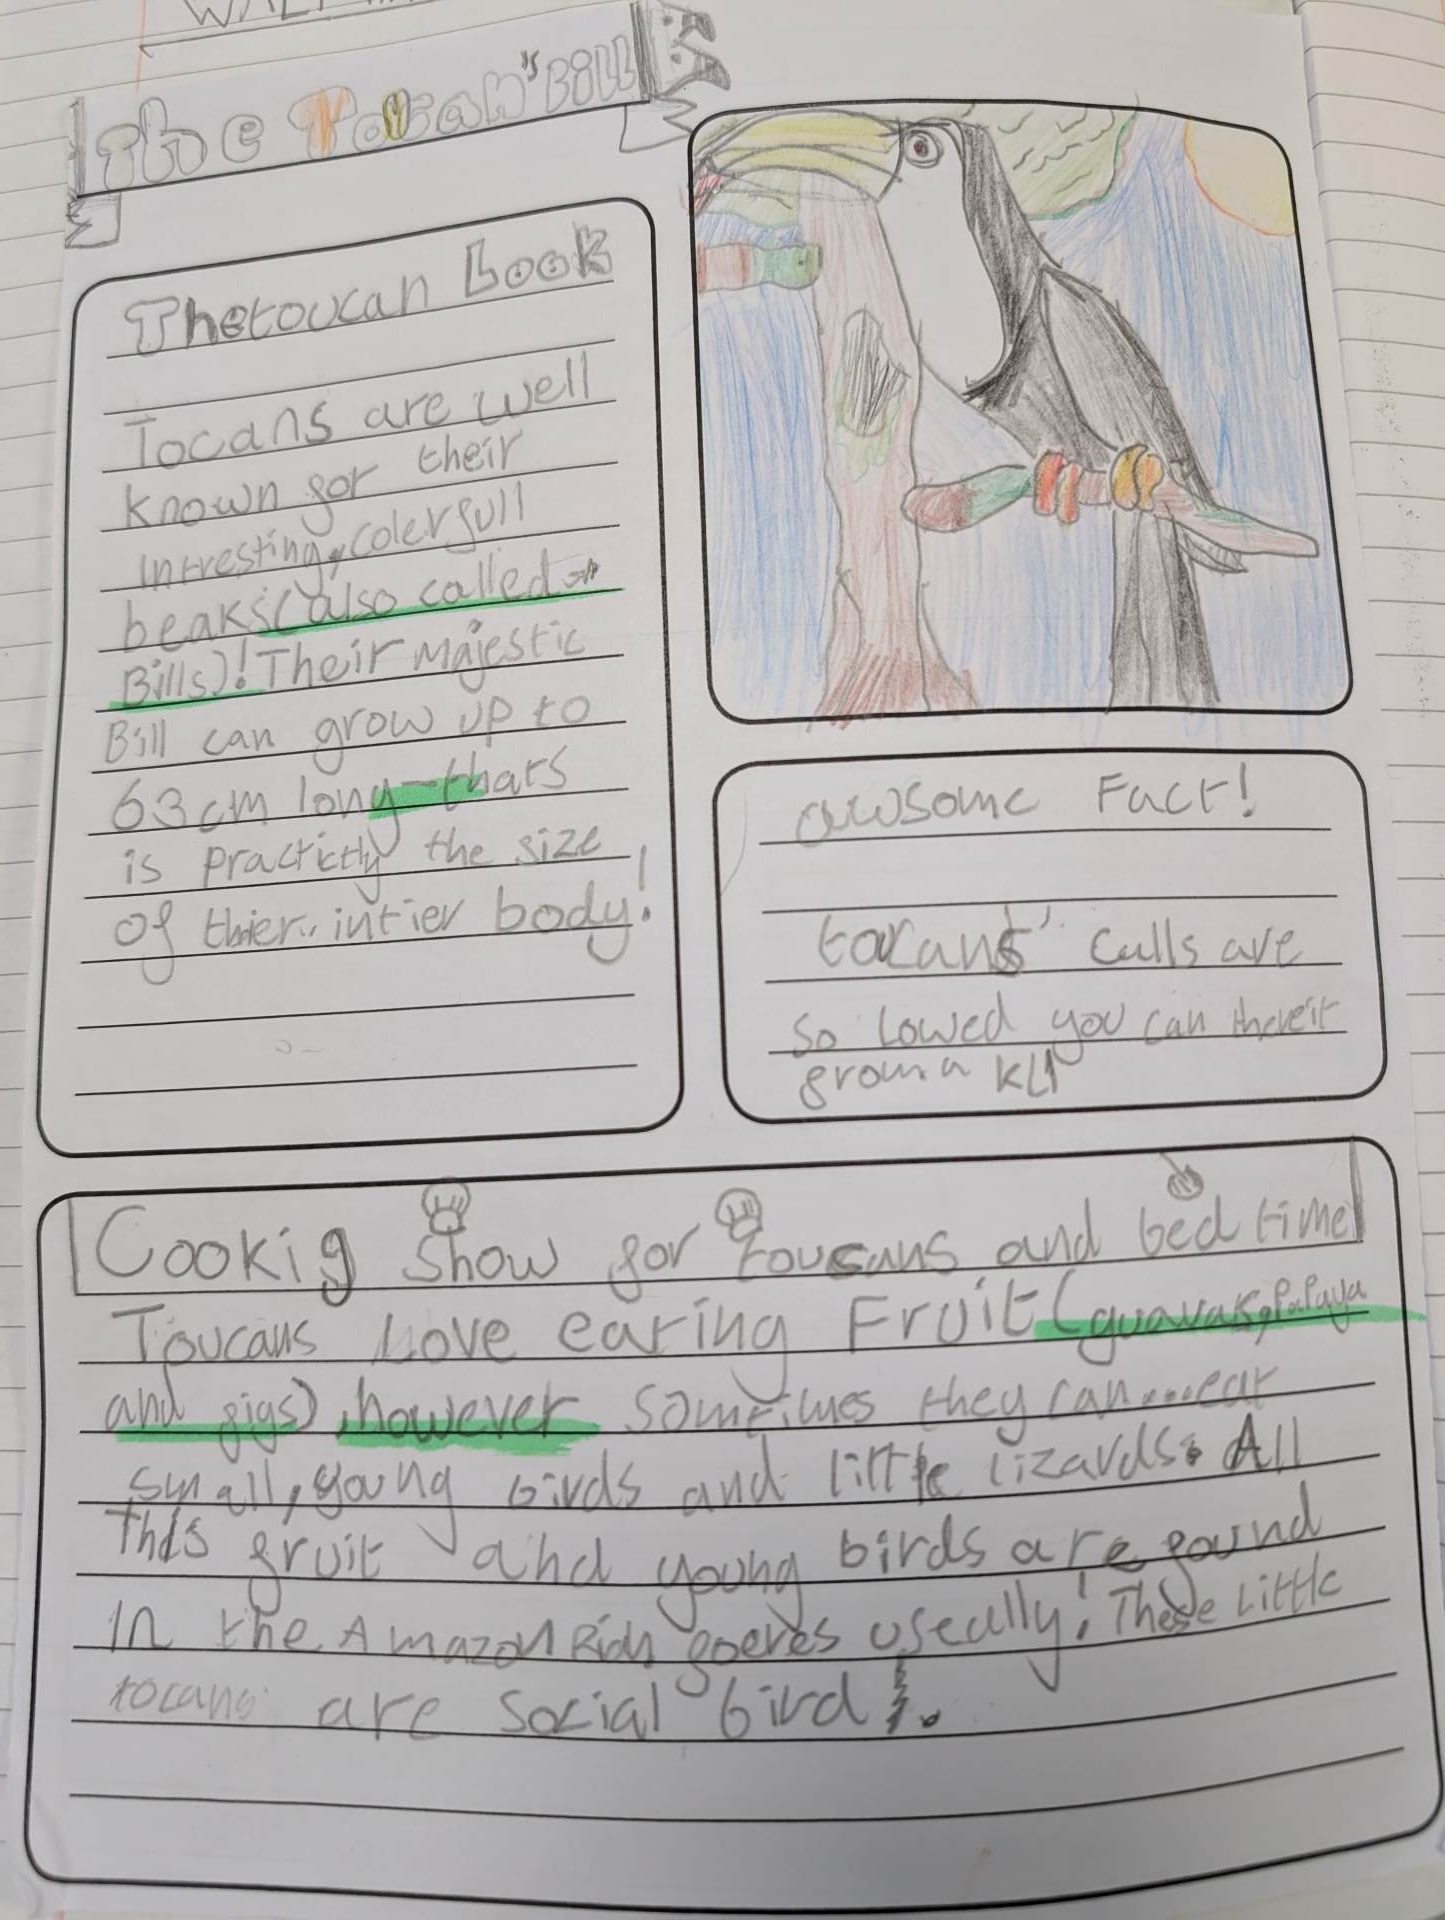 The Tocan's Bill
Thetoucan Look
Tocans are well
known for their
Intresting, colerfull
beaks(also called
Bills)! Their majestic
Bill can grow up to
63cm long-thats
is practictly the size
of thier intier body!
awsome Fact!
tocans' calls are
so lowed you can
from a
Cookig show for toucans and bed time
Toucans Love eating Fruit (guavas, Papaya
and figs), however sometimes they can....eat
small, young birds and little lizards. All
This fruit and young birds are found
In the Amazon foeres useally! These Little
tocans are social bird.